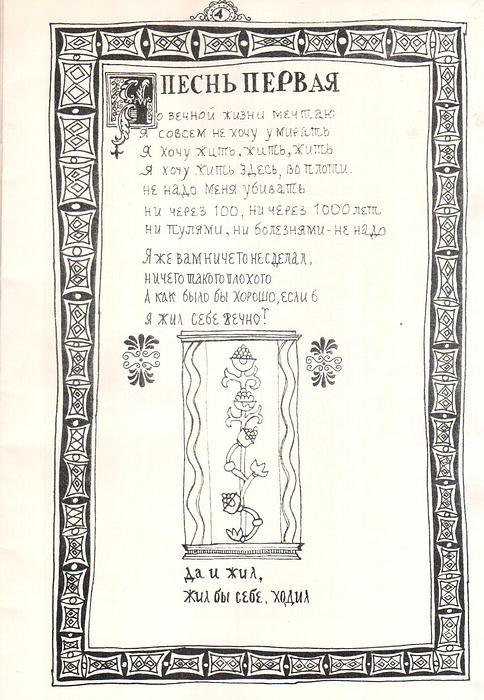 4
ПЕСНЬ ПЕРВАЯ
Я о вечной жизни мечтаю
Я совсем не хочу умирать
Я хочу жить, жить, жить
Я хочу жить здесь, во плоти.
не надо меня убивать
ни через 100, ни через 1000 лет
ни пулями, ни болезнями - не надо
Я же вам ничего не сделал,
ничего такого плохого
А как было бы хорошо, если б
я жил себе вечно?
да и жил,
жил бы себе, ходил